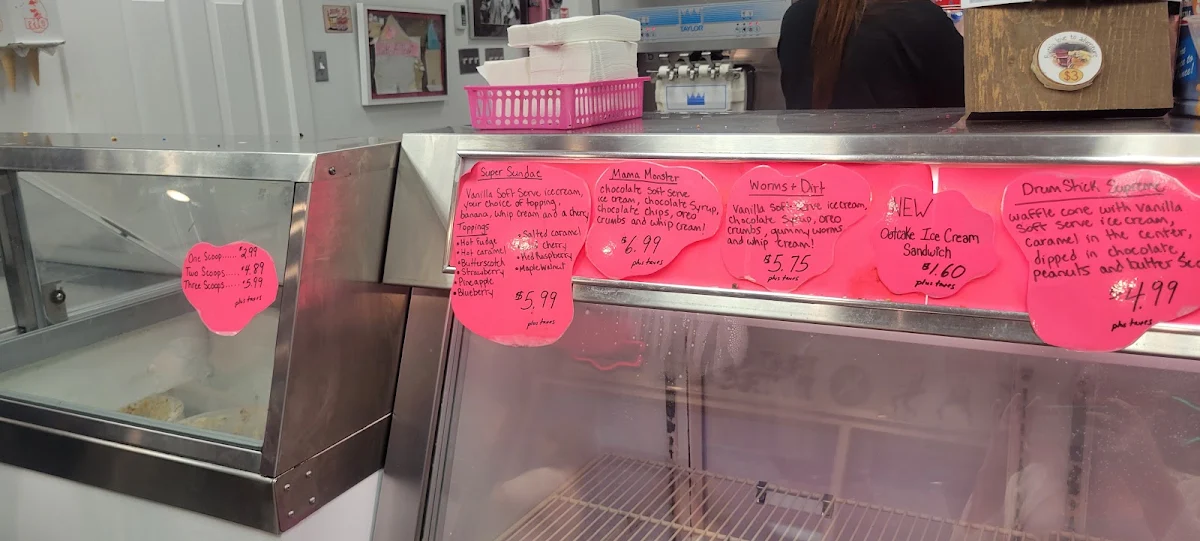 TAYLOR
$3
One Scoop.....$2.99
Two Scoops....$4.89
Three Scoops...$5.99
plus taxes
Super Sundae
Vanilla Soft Serve ice cream,
your choice of topping,
banana, whip cream and a cherry
Toppings
• Hot Fudge
• Hot caramel
• Butterscotch
• Strawberry
• Pineapple
• Blueberry
• Salted caramel
cherry
• Red Raspberry
• Maple Walnut
$5.99
plus taxes
Mama Monster
chocolate soft serve
ice cream, chocolate syrup,
chocolate chips, oreo
crumbs and whip cream!
$6.99
plus taxes
Worms + Dirt
Vanilla Soft Serve ice cream,
chocolate syrup, oreo
crumbs, gummy worms
and whip cream!
$5.75
plus taxes
NEW
Oatcake Ice Cream
Sandwich
$1.60
plus taxes
Drum Stick Supreme
waffle cone with vanilla
Soft serve ice cream,
caramel in the center,
dipped in chocolate,
peanuts and butter
$4.99
plus taxes